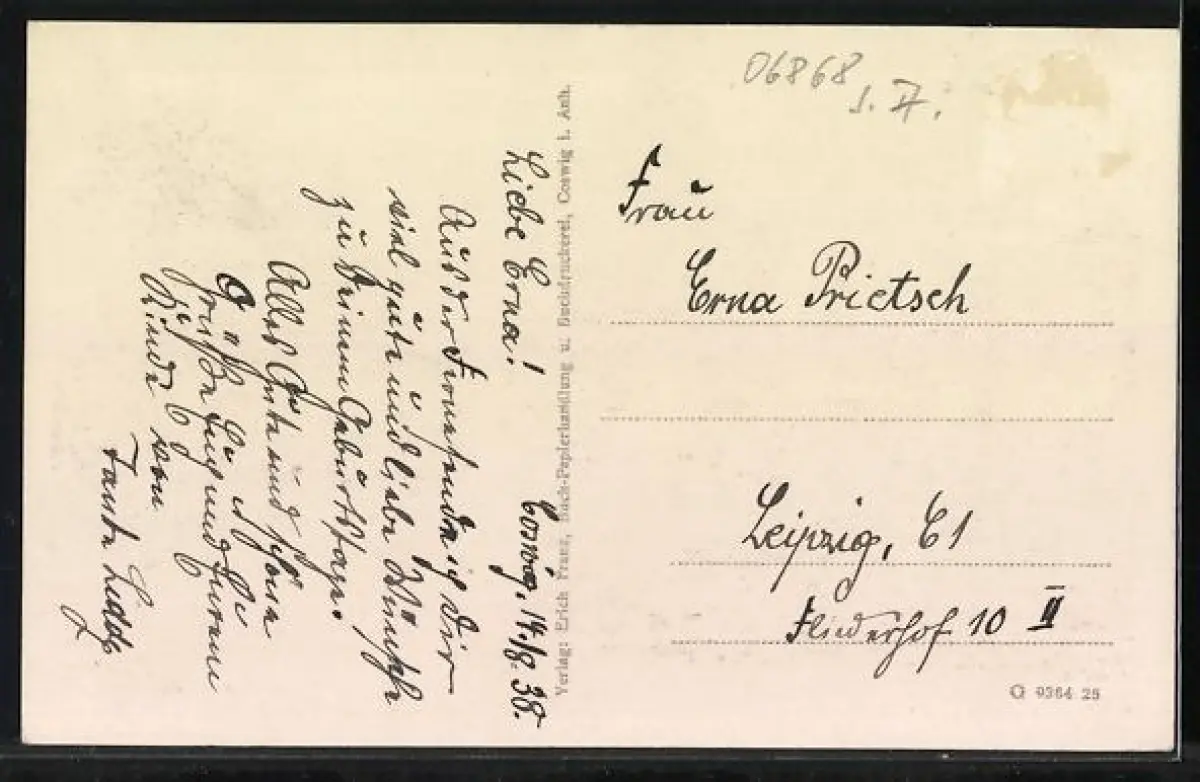 Coswig, 14./8. 38.
Liebe Erna!
Aus der Ferne sende ich Dir
viel gute und liebe Wünsche
zu Deinem Geburtstage.
Alles Gute und schöne
Grüße
Kinder von
Tante
Verlag: Erich Franz, Buch-Papierhandlung u. Buchdruckerei, Coswig i. Anh.
06868
Frau
Erna Prietsch
Leipzig, C1
Fliederhof 10 II
G 9364 25